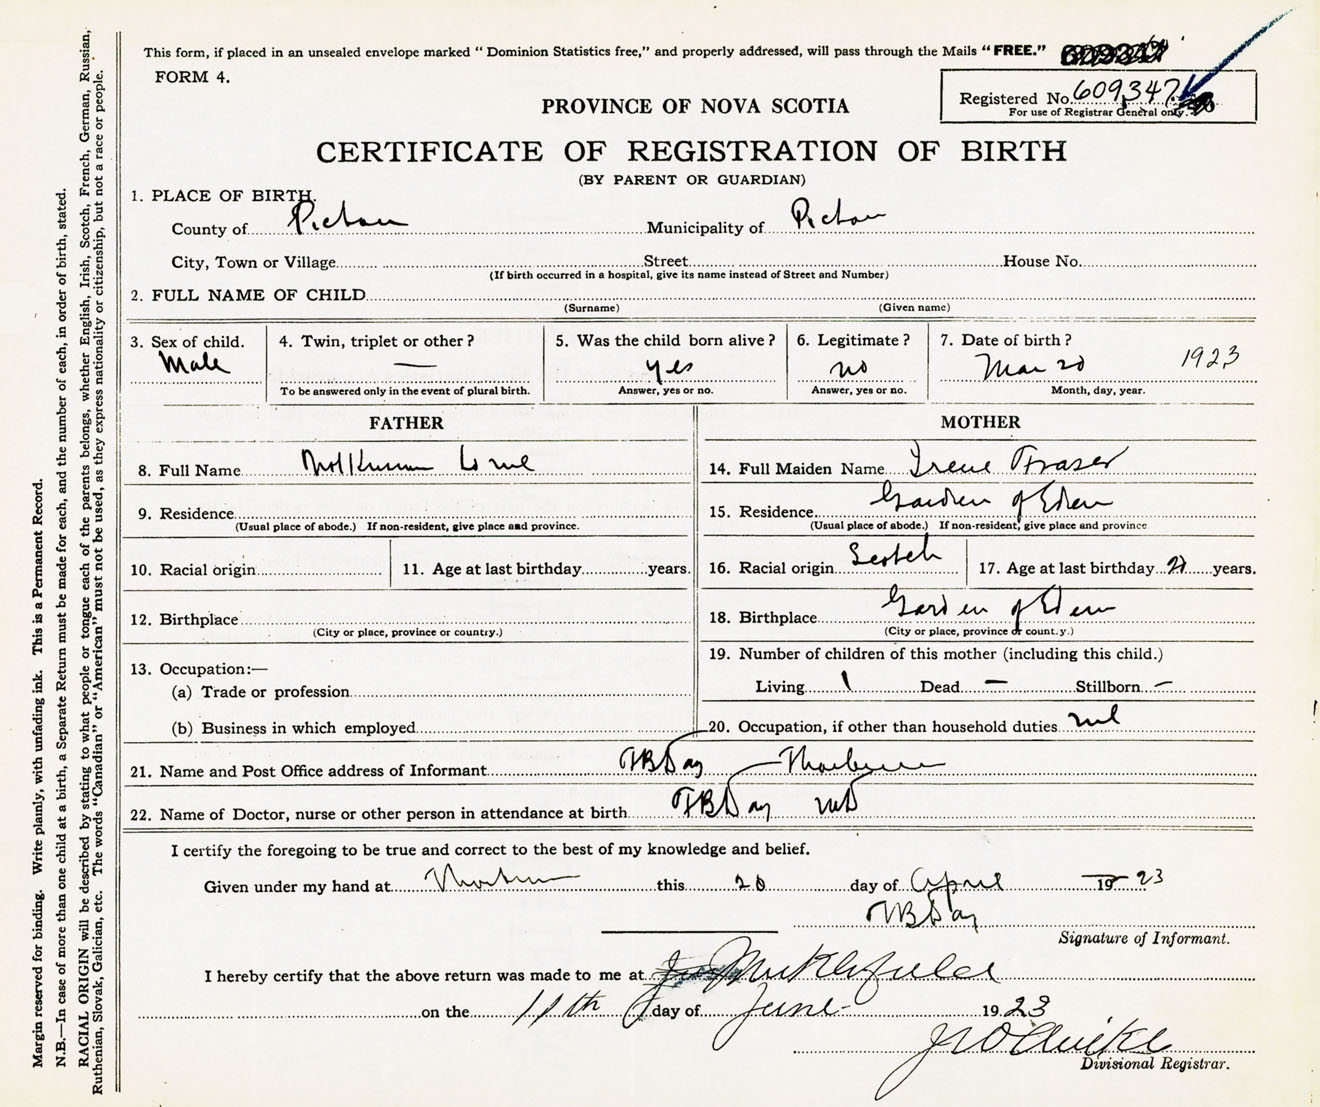 This form, if placed in an unsealed envelope marked " Dominion Statistics free," and properly addressed, will pass through the Mails "FREE."
FORM 4.
Registered No. 609,347
For use of Registrar General only.
PROVINCE OF NOVA SCOTIA
CERTIFICATE OF REGISTRATION OF BIRTH
(BY PARENT OR GUARDIAN)
1. PLACE OF BIRTH.
County of Pictou Municipality of Pictou
City, Town or Village Street House No.
(If birth occurred in a hospital, give its name instead of Street and Number)
2. FULL NAME OF CHILD
(Surname) (Given name)
3. Sex of child. 4. Twin, triplet or other ? 5. Was the child born alive ? 6. Legitimate ? 7. Date of birth ?
Male — yes no Mar 20 1923
To be answered only in the event of plural birth. Answer, yes or no. Answer, yes or no. Month, day, year.
FATHER MOTHER
8. Full Name 14. Full Maiden Name Irene Fraser
9. Residence 15. Residence Garden of Eden
(Usual place of abode.) If non-resident, give place and province. (Usual place of abode.) If non-resident, give place and province
10. Racial origin 11. Age at last birthday years. 16. Racial origin Scotch 17. Age at last birthday years.
12. Birthplace 18. Birthplace Garden of Eden
(City or place, province or country.) (City or place, province or count.y.)
13. Occupation:— 19. Number of children of this mother (including this child.)
(a) Trade or profession Living 1 Dead — Stillborn —
(b) Business in which employed 20. Occupation, if other than household duties nil
21. Name and Post Office address of Informant Day — Thorburn
22. Name of Doctor, nurse or other person in attendance at birth Day MD
I certify the foregoing to be true and correct to the best of my knowledge and belief.
Given under my hand at Thorburn this 20 day of April 19 23
Day
Signature of Informant.
I hereby certify that the above return was made to me at
on the 11th day of June 19 23
Divisional Registrar.
Margin reserved for binding. Write plainly, with unfading ink. This is a Permanent Record.
N.B.—In case of more than one child at a birth, a Separate Return must be made for each, and the number of each, in order of birth, stated.
RACIAL ORIGIN will be described by stating to what people or tongue each of the parents belongs, whether English, Irish, Scotch, French, German, Russian,
Ruthenian, Slovak, Galician, etc. The words "Canadian" or "American" must not be used, as they express nationality or citizenship, but not a race or people.